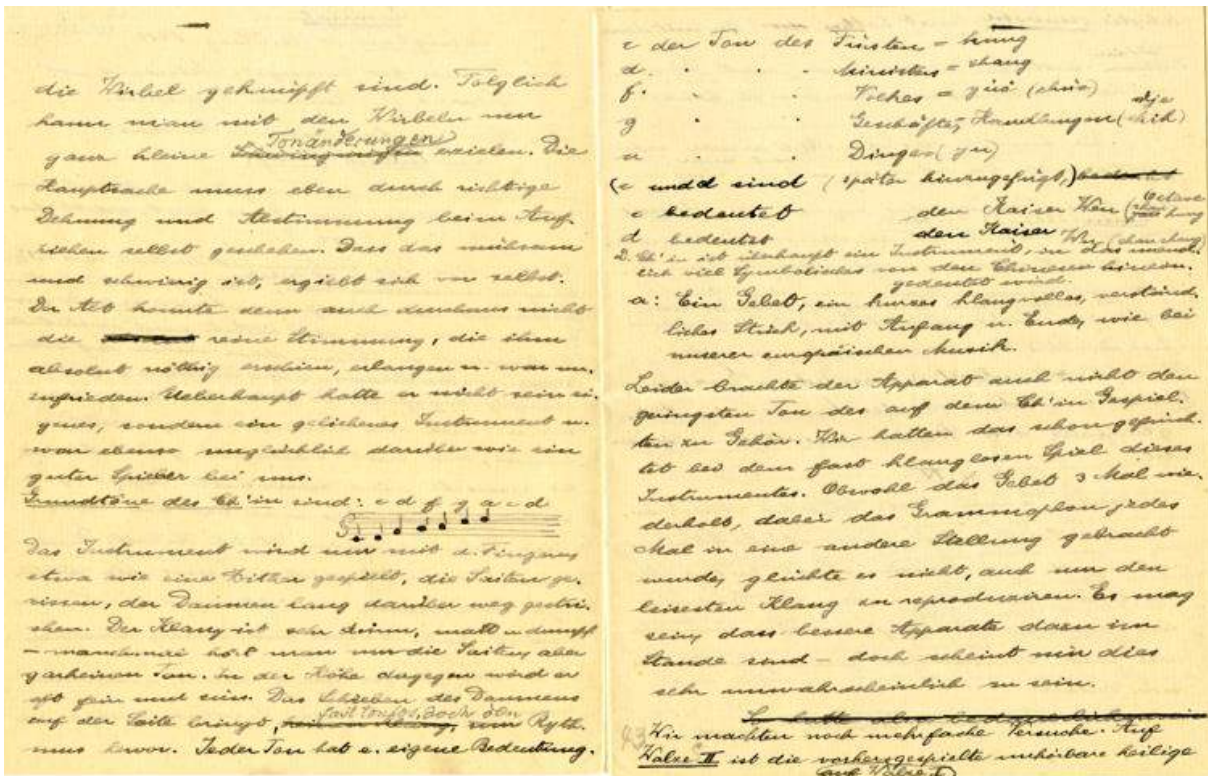 die Wirbel geknüpft sind. Folglich
kann man mit den Wirbeln nur
Tonänderungen
ganz kleine erzielen. Die
Hauptsache muss eben durch richtige
Dehnung und Abstimmung beim Auf-
ziehen selbst geschehen. Dass das mühsam
und schwierig ist, ergiebt sich von selbst.
Der Alte konnte denn auch durchaus nicht
die reine Stimmung, die ihm
absolut nöthig erschien, erlangen u. war un-
zufrieden. Ueberhaupt hatte er nicht sein ei-
genes, sondern ein geliehenes Instrument u.
war ebenso unglücklich darüber wie ein
guter Spieler bei uns.
Grundtöne des Ch'in sind: c d f g a c d
Das Instrument wird nur mit d. Fingern
etwa wie eine Zither gespielt, die Saiten ge-
rissen, der Daumen lang darüber weg gestri-
chen. Der Klang ist sehr dünn, matt u. dumpf
- manchmal hört man nur die Saiten, aber
gar keinen Ton. In der Höhe dagegen wird er
oft fein und süss. Das Schieben des Daumens
fast tonlos, doch den
auf der Saite bringt, Ryth-
mus hervor. Jeder Ton hat e. eigene Bedeutung.
c der Ton des Fürsten = kung
d. " " Ministers = shang
f. " " Volkes = yüo (chüo)
g " " Geschäfte, Handlungen (dje chih)
a " " Dinges (yü)
(c und d sind (später hinzugefügt,) bedeutet
c bedeutet den Kaiser Wen (Octave kung
d bedeutet den Kaiser Wu (shao shang)
D. Ch'in ist überhaupt ein Instrument, in das unend-
lich viel Symbolisches von den Chinesen hinein-
gedeutet wird.
a: Ein Gebet, ein kurzes klangvolles, verständ-
liches Stück, mit Anfang u. Ende, wie bei
unserer europäischen Musik.
Leider brachte der Apparat auch nicht den
geringsten Ton des auf dem Ch'in Gespiel-
ten zu Gehör. Wir hatten das schon gefürch-
tet bei dem fast klanglosen Spiel dieses
Instrumentes. Obwohl das Gebet 3 Mal wie-
derholt, dabei das Grammophon jedes
Mal in eine andere Stellung gebracht
wurde, glückte es nicht, auch nur den
leisesten Klang zu reproduziren. Es mag
sein, dass bessere Apparate dazu im
Stande sind - doch scheint mir dies
sehr unwahrscheinlich zu sein.
Wir machten noch mehrfache Versuche. Auf
Walze II ist die vorhergespielte unhörbare heilige
(auf Walze I)